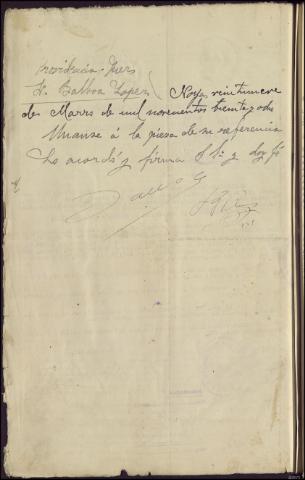 Providencia Juez
Sr Balboa Lopez  Noya veintinueve
de Marzo de mil novecientos treinta y ocho
Unanse á la pieza de su referencia
Lo acordó y firma S Sª y doy fé